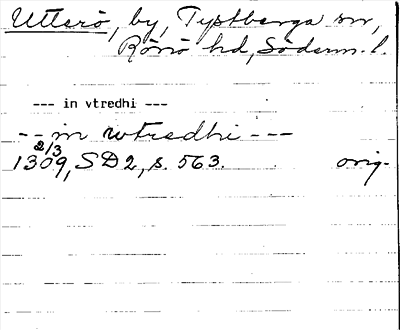 Utterö, by, Tystberga sn,
Rönö hd, Söderm. l.
--- in vtredhi ---
--- in vtredhi ---
2/3
1309, SD2, s. 563. orig.